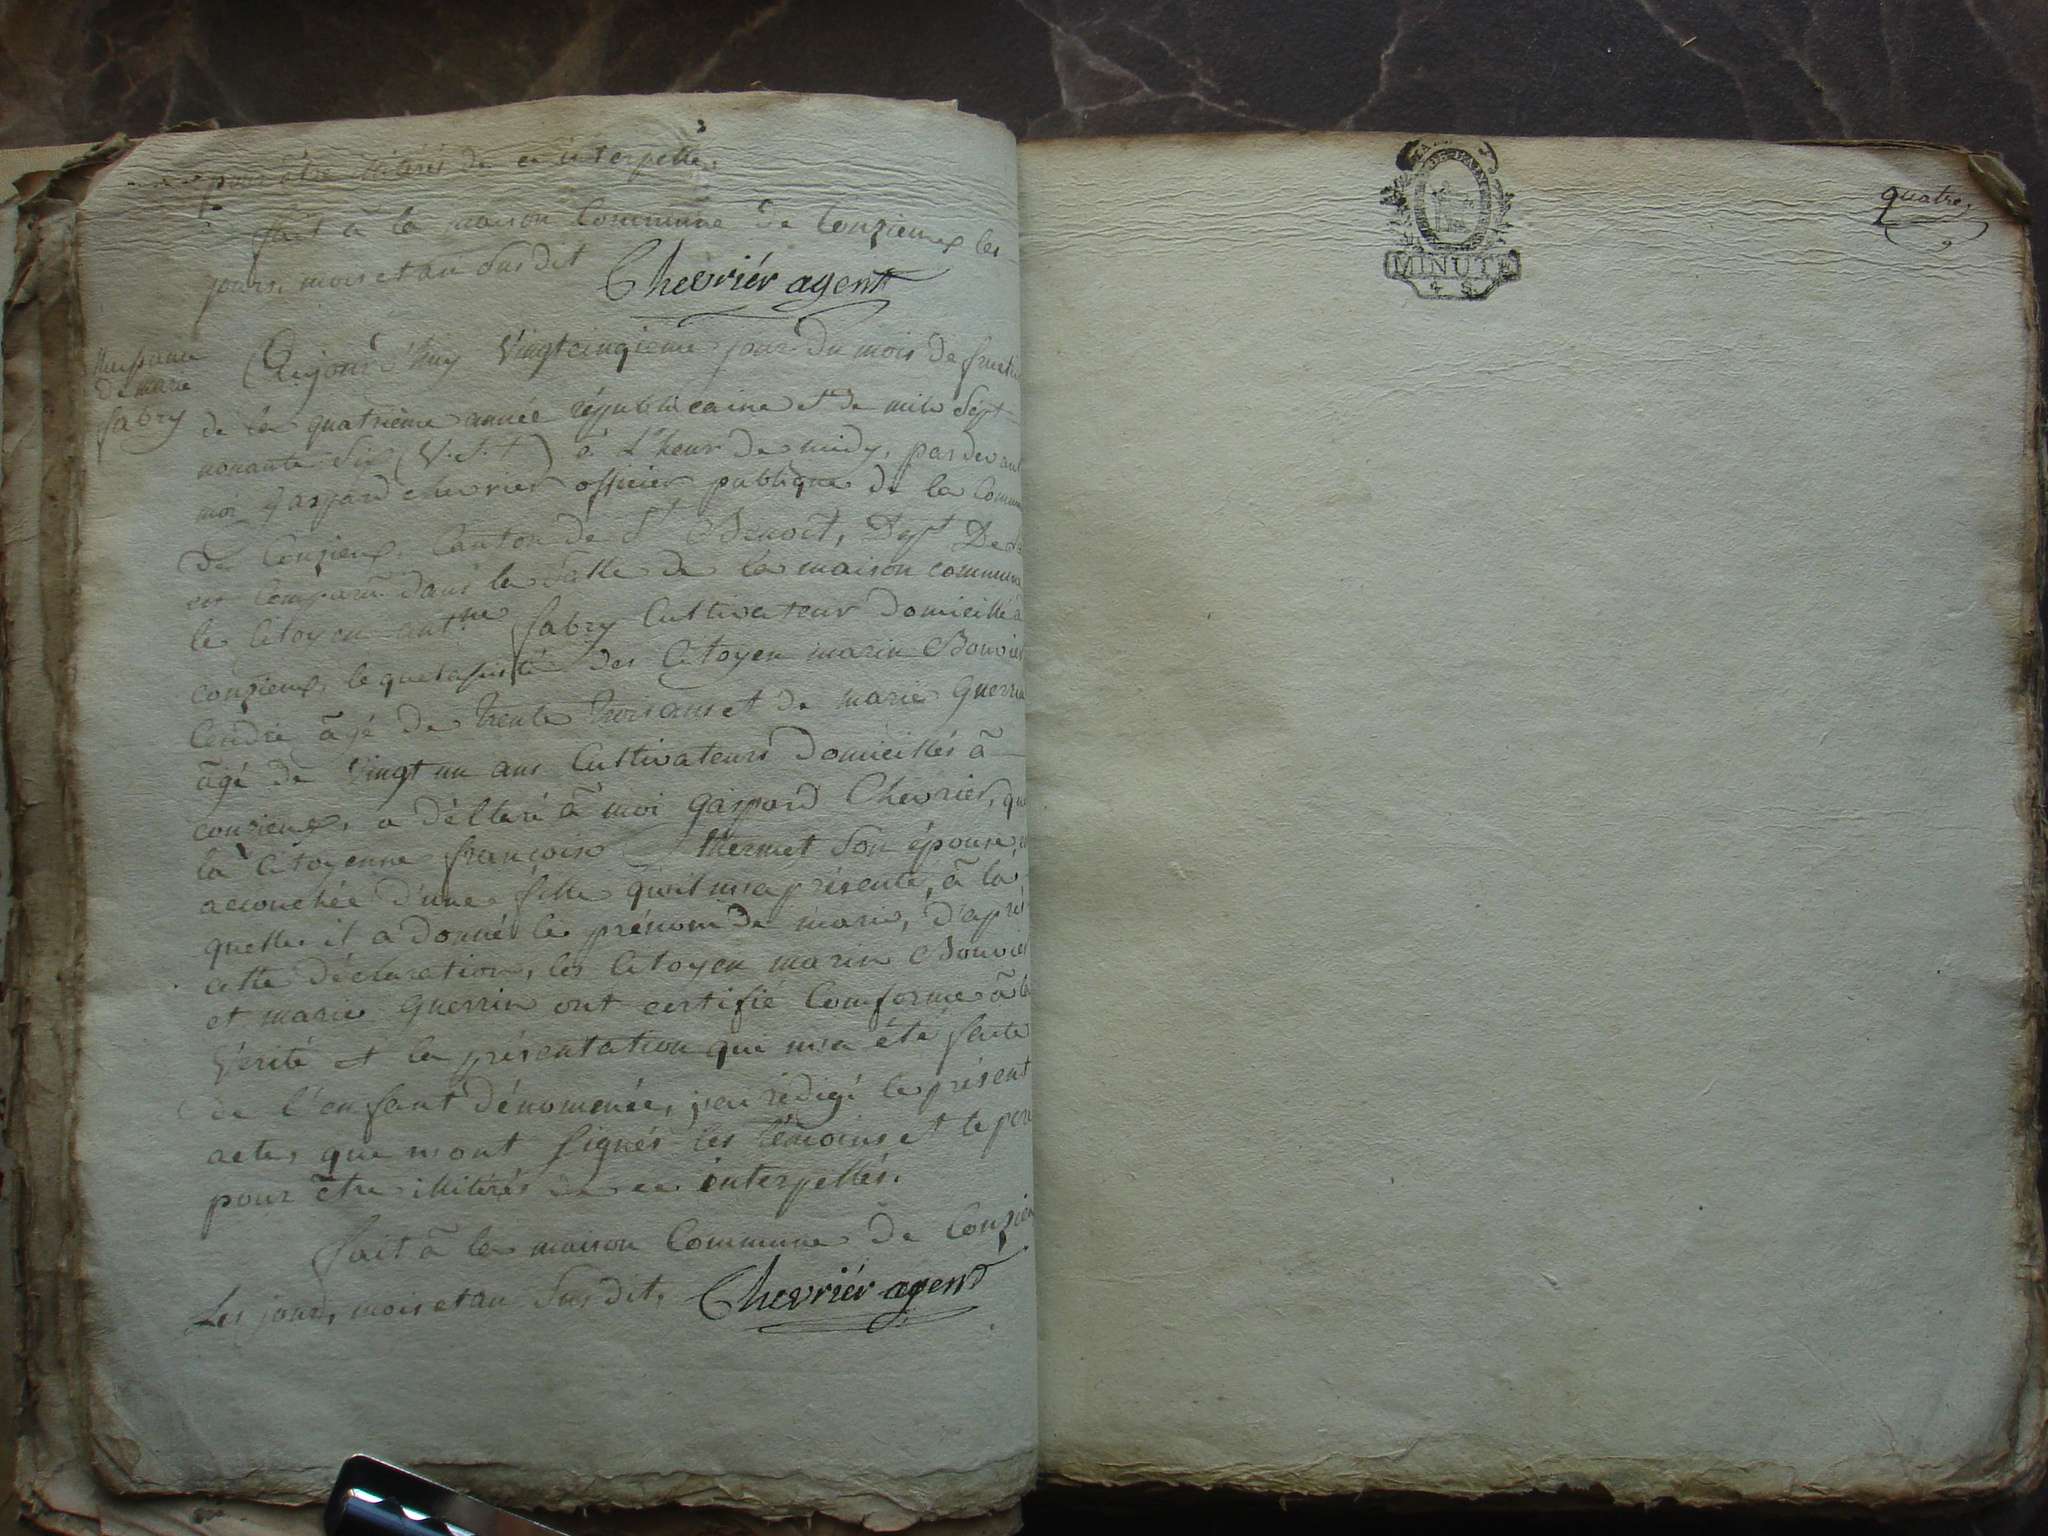 pour être illiterés de ce interpellé.
fait à la maison Commune de Conzieux les
jours, mois et an Susdit
Chevriér agent
Naissance
de marie
fabry
Aujourd'huy Vingtcinqieme jour du mois de fructi
de la quatrième année républicaine et de mile Sept
nonante Six (V.S.t) à L'heur de midy, pardevant
moi Gaspard chevrier officier publique de la Commun
de Conzieux, Canton de St Benoit, Dept De
est Comparu dans la Salle de la maison commune
le Citoyen antne fabry Cultivateur domicillé à
conzieux, le quel assisté des Citoyen marin Bouvier
Cendre âgé de trente trois ans et de marie Guerrin
âgé de Vingt un ans Cultivateurs Domicillés à
conzieux, a déllaré à moi gaspard Chevrier, que
la Citoyenne françoise Thermet Son épouse,
acouchée d'une fille qu'il m'a présenté, à la
quelle il a donné le prénom de marie, d'après
cette déclaration, les Citoyen marin Bouvier
et marie Guerrin ont certifié Comforme à la
Vérité et la présentation qui m'a été faite
de l'enfant dénomenée, j'ai rédigé le présent
actes que n'ont Signés les témoins et le pere
pour être illiterés de ce interpellés.
fait à la maison Commune de Conzieu
Les jours, mois et an Susdit,
Chevriér agent
quatre
MINUTE